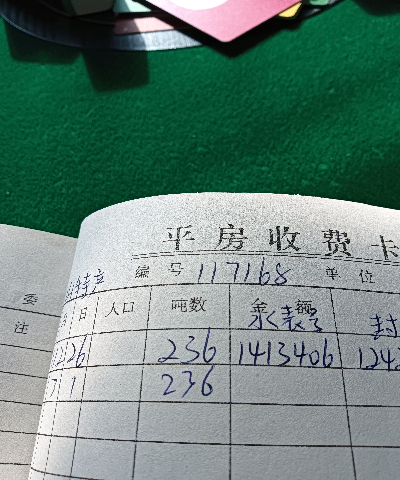 平房收费卡
编号 117168 单位
委
注
日 人口 吨数 金额 水表号 封
26 236 1413406 1242
7 1 236